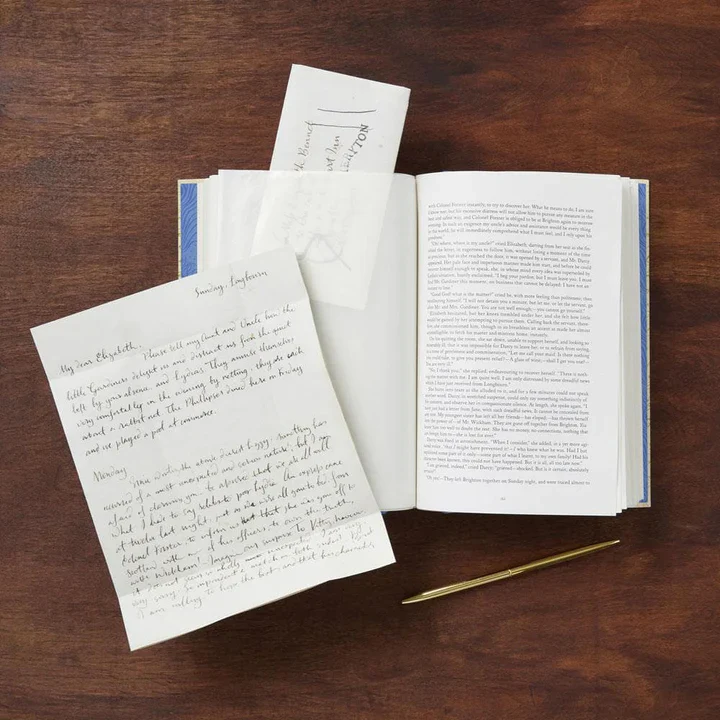 th Bennet
rt Inn
TON
Sunday, Longbourn
My dear Elizabeth, Please tell my Aunt and Uncle how the
little Gardiners delight us and distract us from the quiet
left by your absence, and Lydia's. They amuse themselves
very comfortably in the evening by netting; they are each
about a netted out. The Phillipses dined here on Friday
and we played a pool at commerce.
Monday. Since writing the above, dearest Lizzy, something has
occurred of a most unexpected and serious nature; but I am
afraid of alarming you; be assured that we are all well.
What I have to say relates to poor Lydia. An express came
at twelve last night, just as we were all gone to bed, from
Colonel Forster to inform us that she was gone off to
Scotland with one of his officers; to own the truth,
with Wickham! Imagine our surprise. To Kitty, however,
it does not seem so wholly unexpected. I am very,
very sorry. So imprudent a match on both sides! But
I am willing to hope the best, and that his character
with Colonel Forster instantly, to try to discover her. What he means to do, I am sure
I know not; but his excessive distress will not allow him to pursue any measure in the
best and safest way, and Colonel Forster is obliged to be at Brighton again to-morrow
evening. In such an exigence my uncle's advice and assistance would be every thing
in the world; he will immediately comprehend what I must feel, and I rely upon his
goodness."
"Oh! where, where is my uncle?" cried Elizabeth, darting from her seat as she finished
the letter, in eagerness to follow him, without losing a moment of the time
so precious; but as she reached the door, it was opened by a servant, and Mr. Darcy
appeared. Her pale face and impetuous manner made him start, and before he could
recover himself enough to speak, she, in whose mind every idea was superseded by
Lydia's situation, hastily exclaimed, "I beg your pardon, but I must leave you. I must
find Mr. Gardiner this moment, on business that cannot be delayed; I have not an
instant to lose."
"Good God! what is the matter?" cried he, with more feeling than politeness; then
recollecting himself, "I will not detain you a minute, but let me, or let the servant, go
after Mr. and Mrs. Gardiner. You are not well enough;—you cannot go yourself."
Elizabeth hesitated, but her knees trembled under her, and she felt how little
would be gained by her attempting to pursue them. Calling back the servant, therefore,
she commissioned him, though in so breathless an accent as made her almost
unintelligible, to fetch his master and mistress home, instantly.
On his quitting the room, she sat down, unable to support herself, and looking so
miserably ill, that it was impossible for Darcy to leave her, or to refrain from saying,
in a tone of gentleness and commiseration, "Let me call your maid. Is there nothing
you could take, to give you present relief?—A glass of wine;—shall I get you one?—
You are very ill."
"No, I thank you;" she replied, endeavouring to recover herself. "There is nothing
the matter with me. I am quite well. I am only distressed by some dreadful news
which I have just received from Longbourn."
She burst into tears as she alluded to it, and for a few minutes could not speak
another word. Darcy, in wretched suspense, could only say something indistinctly of
his concern, and observe her in compassionate silence. At length, she spoke again. "I
have just had a letter from Jane, with such dreadful news. It cannot be concealed from
any one. My youngest sister has left all her friends—has eloped;—has thrown herself
into the power of—of Mr. Wickham. They are gone off together from Brighton. You
know him too well to doubt the rest. She has no money, no connections, nothing that
can tempt him to—she is lost for ever."
Darcy was fixed in astonishment. "When I consider," she added, in a yet more agitated
voice, "that I might have prevented it!—I who knew what he was. Had I but
explained some part of it only—some part of what I learnt, to my own family! Had his
character been known, this could not have happened. But it is all, all too late now."
"I am grieved, indeed," cried Darcy; "grieved—shocked. But is it certain, absolutely
certain?"
"Oh yes!—They left Brighton together on Sunday night, and were traced almost to